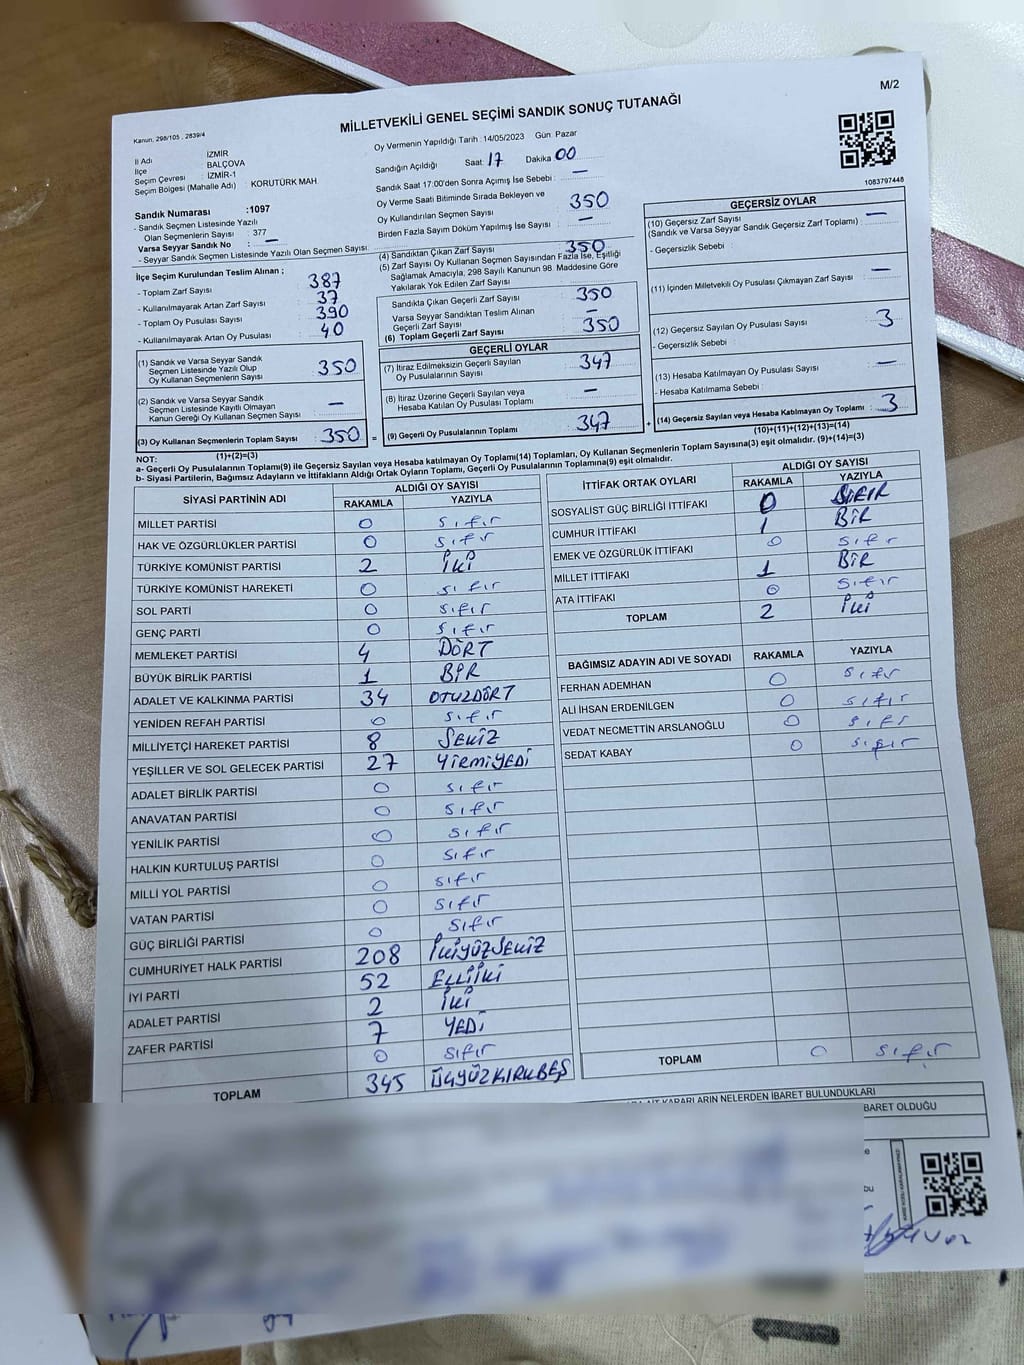 M/2
MİLLETVEKİLİ GENEL SEÇİMİ SANDIK SONUÇ TUTANAĞI
Kanun, 298/105, 2839/4
İl Adı : İZMİR
İlçe : BALÇOVA
Seçim Çevresi : İZMİR-1
Seçim Bölgesi (Mahalle Adı) : KORUTÜRK MAH
Sandık Numarası :1097
- Sandık Seçmen Listesinde Yazılı
Olan Seçmenlerin Sayısı : 377
Varsa Seyyar Sandık No : —
- Seyyar Sandık Seçmen Listesinde Yazılı Olan Seçmen Sayısı:
Oy Vermenin Yapıldığı Tarih : 14/05/2023 Gün: Pazar
Sandığın Açıldığı Saat 17 Dakika 00
Sandık Saat 17:00'den Sonra Açımış İse Sebebi : —
Oy Verme Saati Bitiminde Sırada Bekleyen ve
Oy Kullandırılan Seçmen Sayısı : 350
Birden Fazla Sayım Döküm Yapılmış İse Sayısı : —
1083797448
İlçe Seçim Kurulundan Teslim Alınan ;
- Toplam Zarf Sayısı : 387
- Kullanılmayarak Artan Zarf Sayısı : 37
- Toplam Oy Pusulası Sayısı : 390
- Kullanılmayarak Artan Oy Pusulası : 40
(1) Sandık ve Varsa Seyyar Sandık
Seçmen Listesinde Yazılı Olup
Oy Kullanan Seçmenlerin Sayısı : 350
(2) Sandık ve Varsa Seyyar Sandık
Seçmen Listesinde Kayıtlı Olmayan
Kanun Gereği Oy Kullanan Seçmen Sayısı : —
(3) Oy Kullanan Seçmenlerin Toplam Sayısı : 350
(1)+(2)=(3)
(4) Sandıktan Çıkan Zarf Sayısı : 350
(5) Zarf Sayısı Oy Kullanan Seçmen Sayısından Fazla İse, Eşitliği
Sağlamak Amacıyla, 298 Sayılı Kanunun 98. Maddesine Göre
Yakılarak Yok Edilen Zarf Sayısı :
Sandıkta Çıkan Geçerli Zarf Sayısı : 350
Varsa Seyyar Sandıktan Teslim Alınan
Geçerli Zarf Sayısı : —
(6) Toplam Geçerli Zarf Sayısı : 350
GEÇERLİ OYLAR
(7) İtiraz Edilmeksizin Geçerli Sayılan
Oy Pusulalarının Sayısı : 347
(8) İtiraz Üzerine Geçerli Sayılan veya
Hesaba Katılan Oy Pusulası Toplamı : —
= (9) Geçerli Oy Pusulalarının Toplamı : 347
GEÇERSİZ OYLAR
(10) Geçersiz Zarf Sayısı : —
(Sandık ve Varsa Seyyar Sandık Geçersiz Zarf Toplamı)
- Geçersizlik Sebebi :
(11) İçinden Milletvekili Oy Pusulası Çıkmayan Zarf Sayısı : —
(12) Geçersiz Sayılan Oy Pusulası Sayısı : 3
- Geçersizlik Sebebi :
(13) Hesaba Katılmayan Oy Pusulası Sayısı : —
- Hesaba Katılmama Sebebi :
+ (14) Geçersiz Sayılan veya Hesaba Katılmayan Oy Toplamı : 3
(10)+(11)+(12)+(13)=(14)
NOT:
a- Geçerli Oy Pusulalarının Toplamı(9) ile Geçersiz Sayılan veya Hesaba katılmayan Oy Toplamı(14) Toplamları, Oy Kullanan Seçmenlerin Toplam Sayısına(3) eşit olmalıdır. (9)+(14)=(3)
b- Siyasi Partilerin, Bağımsız Adayların ve İttifakların Aldığı Ortak Oyların Toplamı, Geçerli Oy Pusulalarının Toplamına(9) eşit olmalıdır.
SİYASİ PARTİNİN ADI ALDIĞI OY SAYISI
RAKAMLA YAZIYLA
MİLLET PARTİSİ 0 sıfır
HAK VE ÖZGÜRLÜKLER PARTİSİ 0 sıfır
TÜRKİYE KOMÜNİST PARTİSİ 2 İKİ
TÜRKİYE KOMÜNİST HAREKETİ 0 sıfır
SOL PARTİ 0 sıfır
GENÇ PARTİ 0 sıfır
MEMLEKET PARTİSİ 4 DÖRT
BÜYÜK BİRLİK PARTİSİ 1 BİR
ADALET VE KALKINMA PARTİSİ 34 OTUZDÖRT
YENİDEN REFAH PARTİSİ 0 sıfır
MİLLİYETÇİ HAREKET PARTİSİ 8 SEKİZ
YEŞİLLER VE SOL GELECEK PARTİSİ 27 YİRMİYEDİ
ADALET BİRLİK PARTİSİ 0 sıfır
ANAVATAN PARTİSİ 0 sıfır
YENİLİK PARTİSİ 0 sıfır
HALKIN KURTULUŞ PARTİSİ 0 sıfır
MİLLİ YOL PARTİSİ 0 sıfır
VATAN PARTİSİ 0 sıfır
GÜÇ BİRLİĞİ PARTİSİ 0 sıfır
CUMHURİYET HALK PARTİSİ 208 İKİYÜZSEKİZ
İYİ PARTİ 52 ELLİİKİ
ADALET PARTİSİ 2 İKİ
ZAFER PARTİSİ 7 YEDİ
0 sıfır
TOPLAM 345 ÜÇYÜZKIRKBEŞ
İTTİFAK ORTAK OYLARI ALDIĞI OY SAYISI
RAKAMLA YAZIYLA
SOSYALİST GÜÇ BİRLİĞİ İTTİFAKI 0 SIFIR
CUMHUR İTTİFAKI 1 BİR
EMEK VE ÖZGÜRLÜK İTTİFAKI 0 sıfır
MİLLET İTTİFAKI 1 BİR
ATA İTTİFAKI 0 sıfır
TOPLAM 2 İKİ
BAĞIMSIZ ADAYIN ADI VE SOYADI RAKAMLA YAZIYLA
FERHAN ADEMHAN 0 sıfır
ALİ İHSAN ERDENİLGEN 0 sıfır
VEDAT NECMETTİN ARSLANOĞLU 0 sıfır
SEDAT KABAY 0 sıfır
TOPLAM 0 sıfır
KARARLARIN NELERDEN İBARET BULUNDUKLARI
BARET OLDUĞU